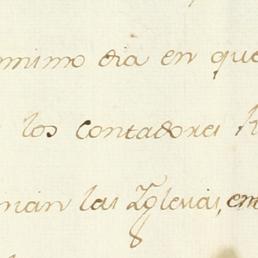 mimo dia en que
los contadores
man las Yglesias, em